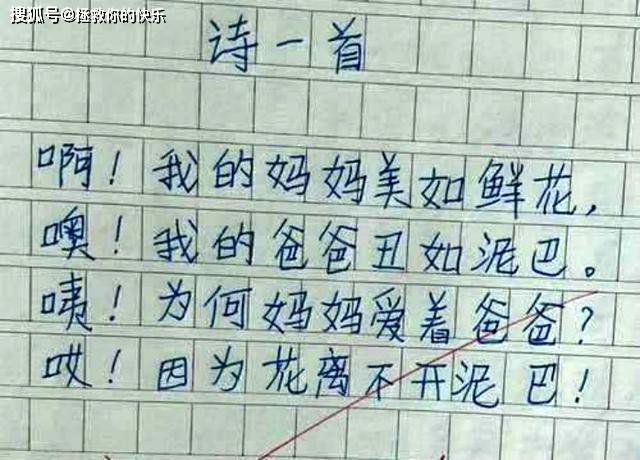 搜狐号@拯救你的快乐
诗一首
啊！我的妈妈美如鲜花，
噢！我的爸爸丑如泥巴。
咦！为何妈妈爱着爸爸？
哎！因为花离不开泥巴！